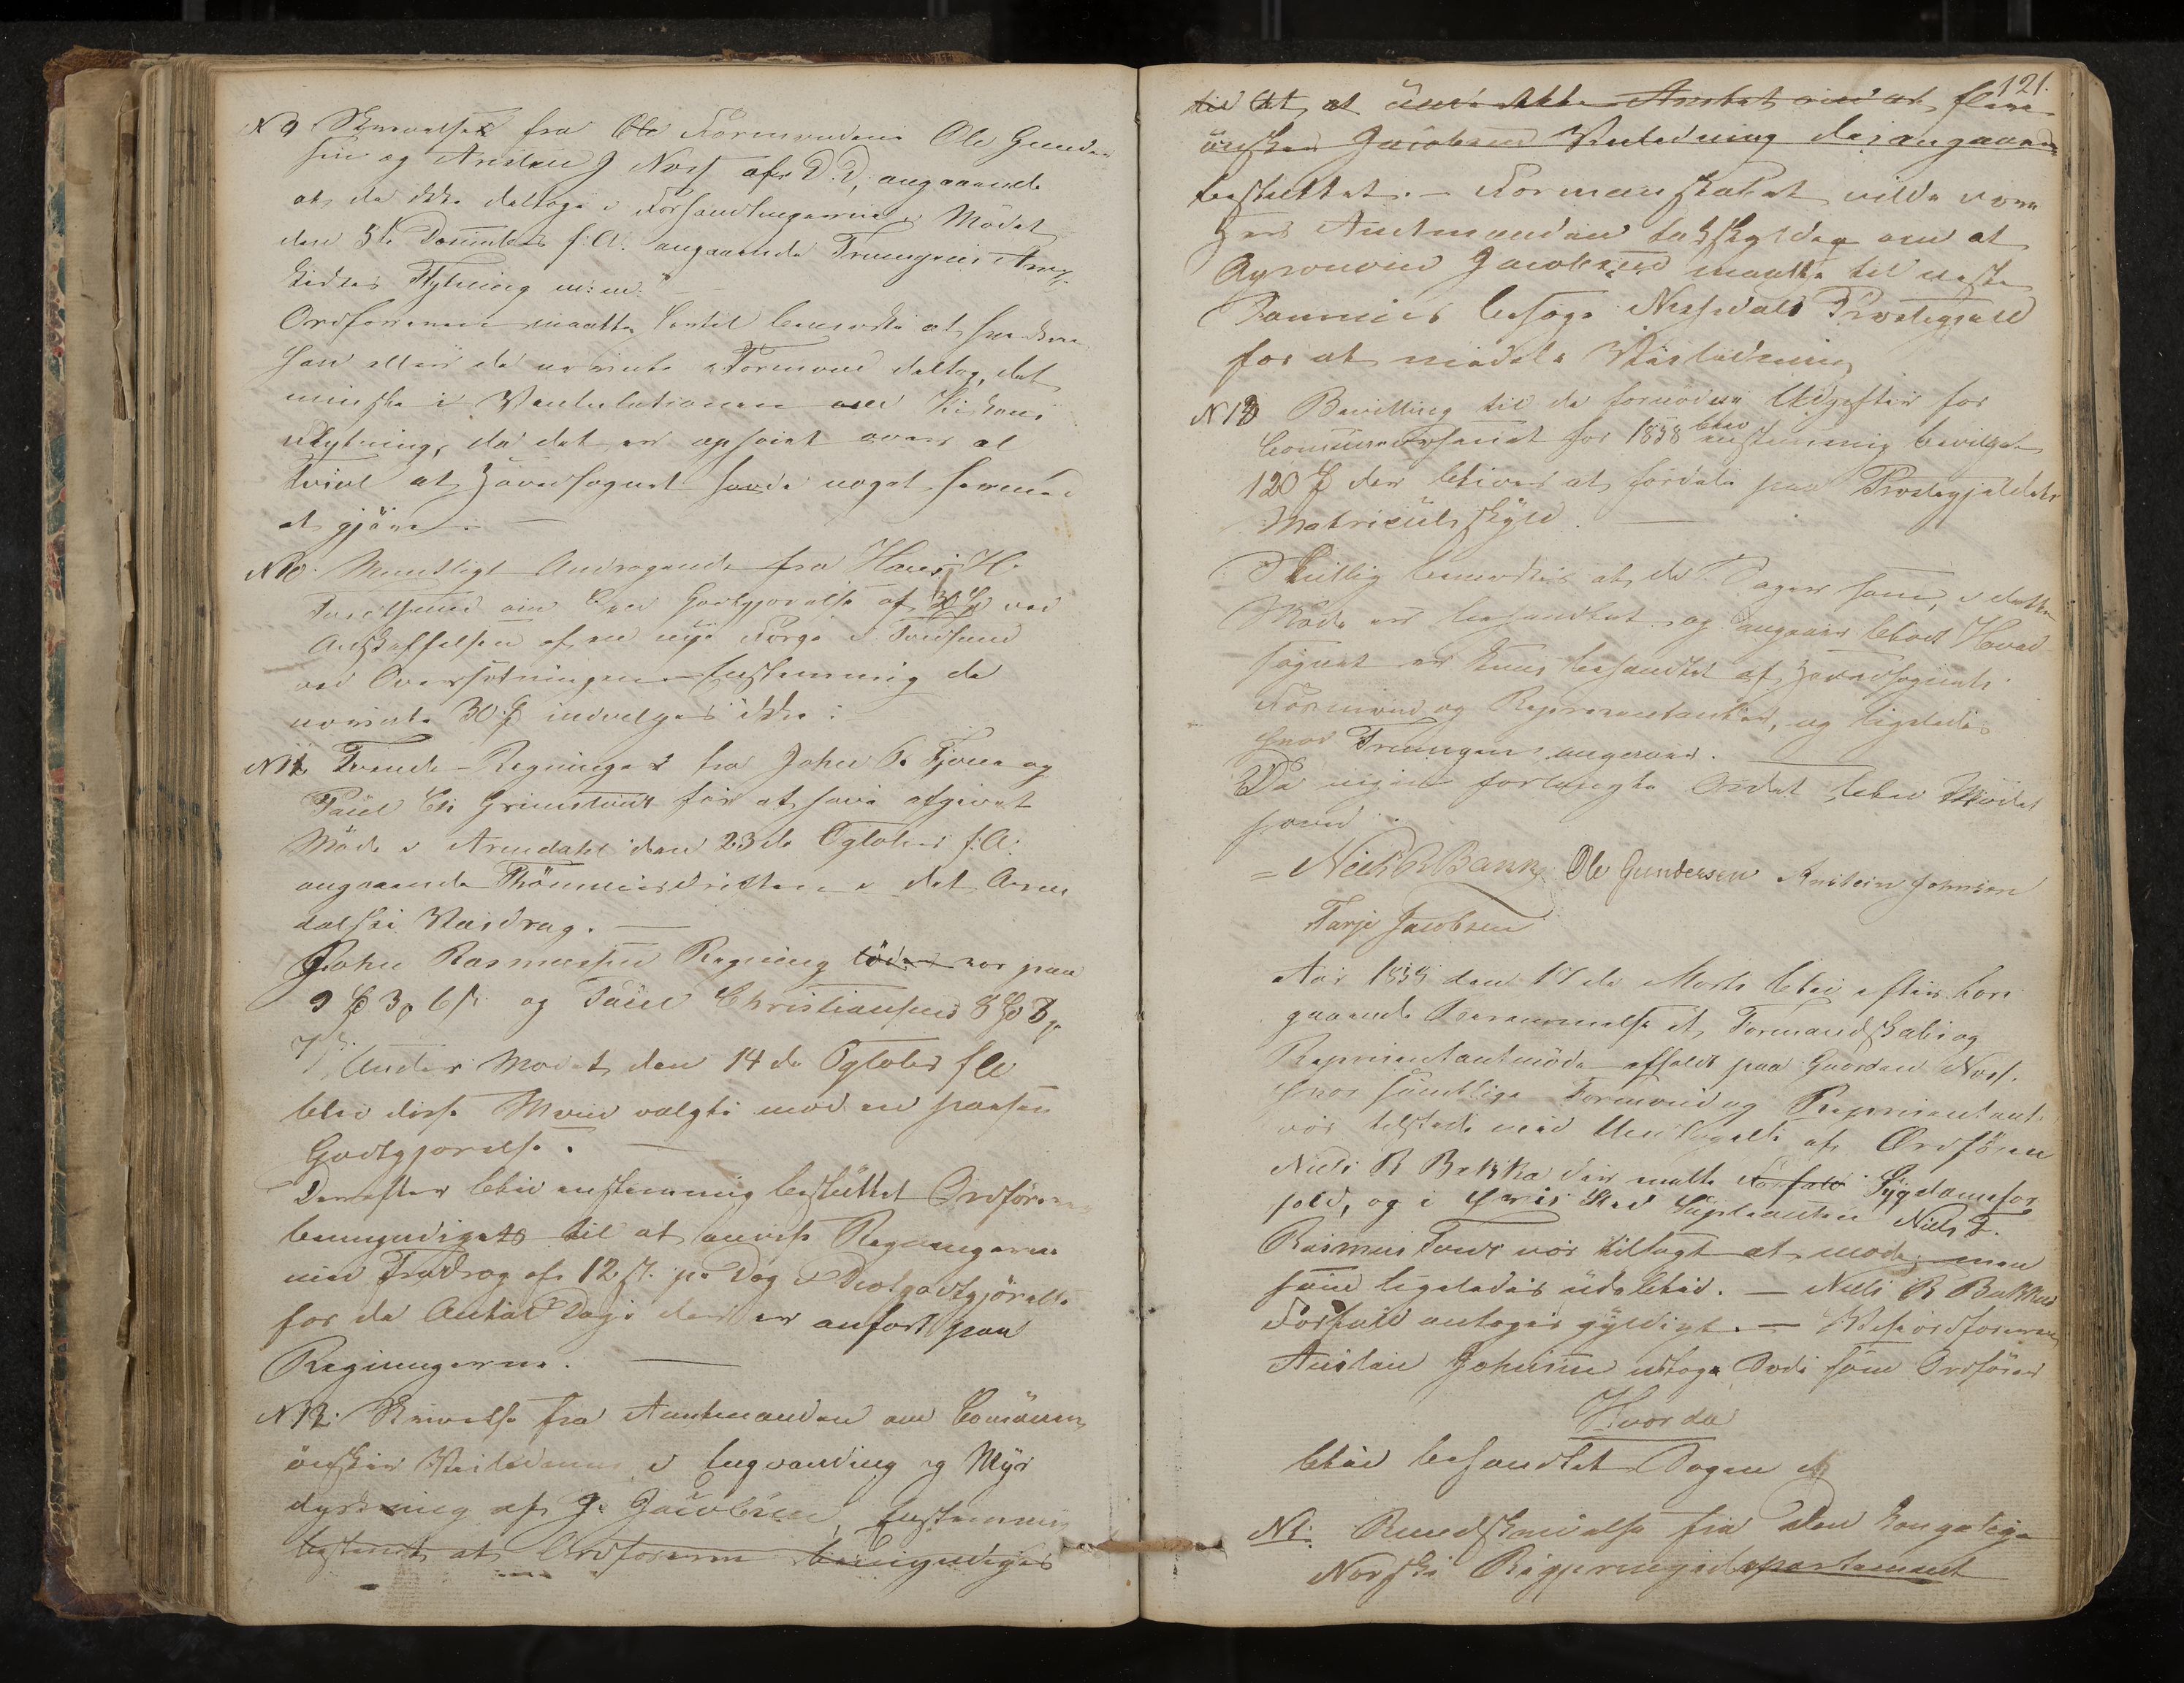 N 9 Skrivelse fra Ole Formændene Ole Gunder
sen og Anstein J Næs af D. D, angaaende
at de ikke deltoge i Forhandlingerne i Mödet
den 3te f: A: angaaende Treungens
Kirkes Flytning m: m:
Ordföreren maatte hertil bemærke at
han eller de nævnte Formænd deltog, det
mindste i Ventilationen om Kirkens
Flytning, da det er ophöiet over al
Tvivl at Hovedsognet havde noget hermed
at gjöre. —
N 10. Mundligt Andragende fra Hans H.
om Godtgjörelse af 30 ved
Anskaffelsen af en nye Færge i
ved Oversætningen — Enstemmig de
nævnte 30 indvilges ikke:
N 11 Tvende Regninger fra John R Fjone og
Paul Chr Grimstveit for at have afgivet
Möde i Arendahl den 23de Ogtober f: A:
angaaende Thömmerdriften i det Aren
dalske Vasdrag. —
John Rasmussen Regning löd var paa
9 3 6 s. og Paul Christiansens 8 3
7 s. Under Mödet den 14de Ogtober f A
blev disse Mænd valgte mod en passen
Godtgjörelse. —
Derefter blev enstemmig besluttet Ordföreren
bemyndiges til at anvise Regningerne
med Fradrag af 12 s. pr Dag i Diætgodtgjörelse
for de Antal Dage der er anfört paa
Regningerne. —
N 12. Skrivelse fra Amtmanden om Comünen
önsker Veiledning i Engvanding og Myr
dyrkning af J. Jacobsen, Enstemmig
bestemt at Ordföreren bemyndiges
121.
til det, at flere
önsker Jacobsens Veiledning desangaaende
besluttet. — Formandskabet vilde være
Herr Amtmanden takskyldig om at
Agronom Jacobsen maatte til neste
Sommer besöge Nissedals Prestegjeld
for at meddele Veiledning
N 13 Bevilling til de fornödne Udgifter for
Comünevæsenet for 1858 blev enstemmig bevilget
120 der bliver at fordele paa Prestegjeldets
Matriculskyld. —
Skutlig bemerkes at de Sager som, i dette
Möde er behandlet og angaaer blodt Hoved
sognet er kuns behandlet af Hovedsognets
Formænd og Representanter, og ligeledes
hvor Treungen angaaer.
Da ingen forlangte Ordet blev Mödet
hævet.
= Niels R Bakke Ole Gundersen Anstein Johnsen
Tarje Jacobsen
Aar 1858 den 17de Marts blev efter fore
gaaende Berammelse et Formandskabs og
Representantmöde afholdt paa Gaarden Næs.
hvor samtlige Formænd og Representant.
var tilstede med Undtagelse af Ordfören
Niels R Bakka der meldte Forfald Sygdomsfor
fald, og i hvis sted Supleanten Niels T.
Rasmus Tveit var tilsagt at möde, men
som ligeledes udeblev. — Niels R Bakkes
Forfald antages gyldigt. — Viseordföreren
Anstein Johnsen indtog Sæde som Ordförer
Hvorda
blev behandlet Sagen
N 1: Rundskrivelse fra Den Kongelige
Norske Regjeringsdepartement